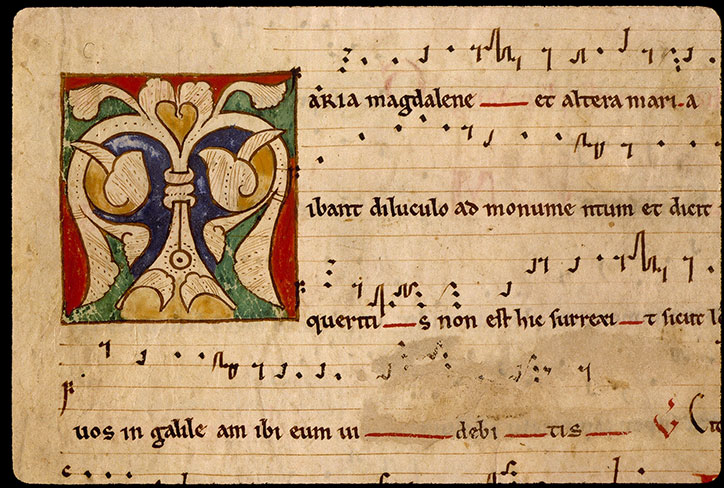 MARIA magdalene et altera maria
ibant diluculo ad monumentum et dicit
queritis non est hic surrexit sicut lo
uos in galileam ibi eum uidebitis V Cit